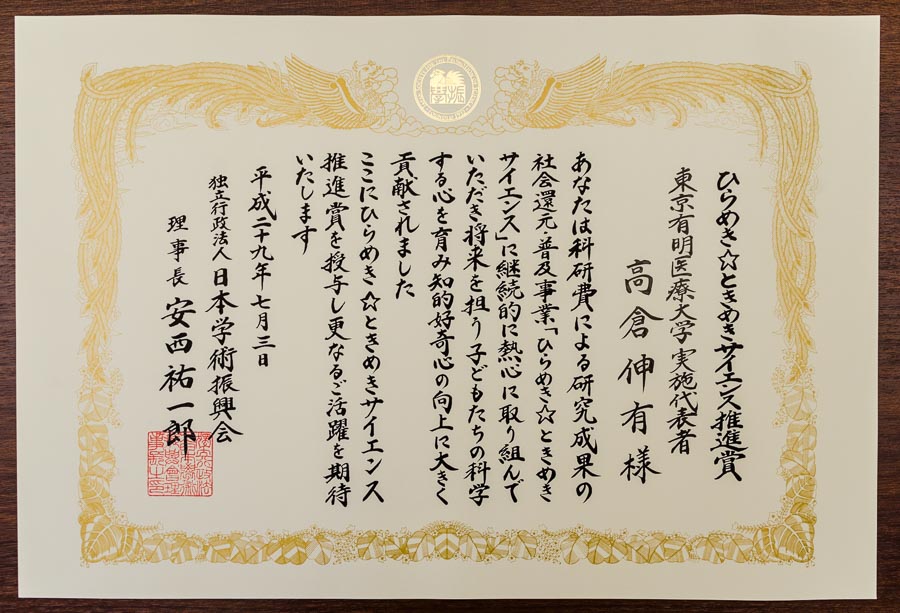 ひらめき☆ときめきサイエンス推進賞
東京有明医療大学 実施代表者
高倉伸有様
あなたは科研費による研究成果の
社会還元・普及事業「ひらめき☆ときめき
サイエンス」に継続的に熱心に取り組んで
いただき将来を担う子どもたちの科学
する心を育み知的好奇心の向上に大きく
貢献されました
ここにひらめき☆ときめきサイエンス
推進賞を授与し更なるご活躍を期待
いたします
平成二十九年七月三日
独立行政法人 日本学術振興会
理事長 安西祐一郎